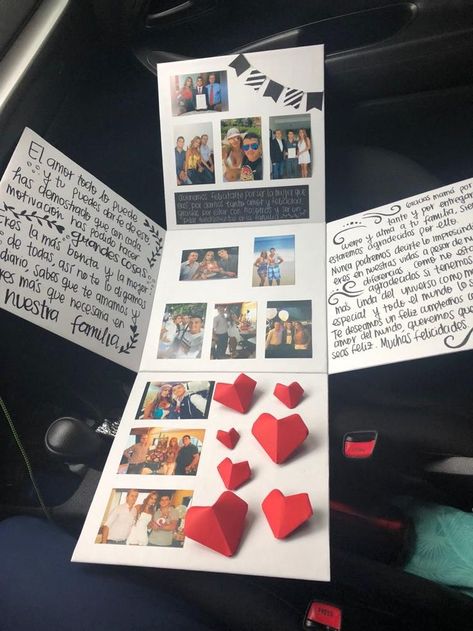 El amor todo lo puede
y tu puedes dar fe de esto,
has demostrado que con cada
motivación has podido hacer
grandes cosas
Eres la más bonita y la mejor
de todas, así no te lo digamos
diario sabes que te amamos y
eres más que necesaria en
nuestra familia
queremos felicitarte por ser la mujer que
nos por darnos tanto amor y felicidad.
Gracias por estar con nosotros y ser un
en la familia
Gracias mamá por
tanto y por entregar
cuerpo y alma a tu familia. Siempre
estaremos agradecidos por ello.
Nunca podremos decirte lo importante
eres en nuestras vidas a pesar de
diferencias, como no estar
agradecidos si tenemos
más linda del universo como
especial y todo el mundo lo
Te deseamos un feliz cumpleaños
amor del mundo, queremos que
seas feliz. Muchas felicidades
PRESS